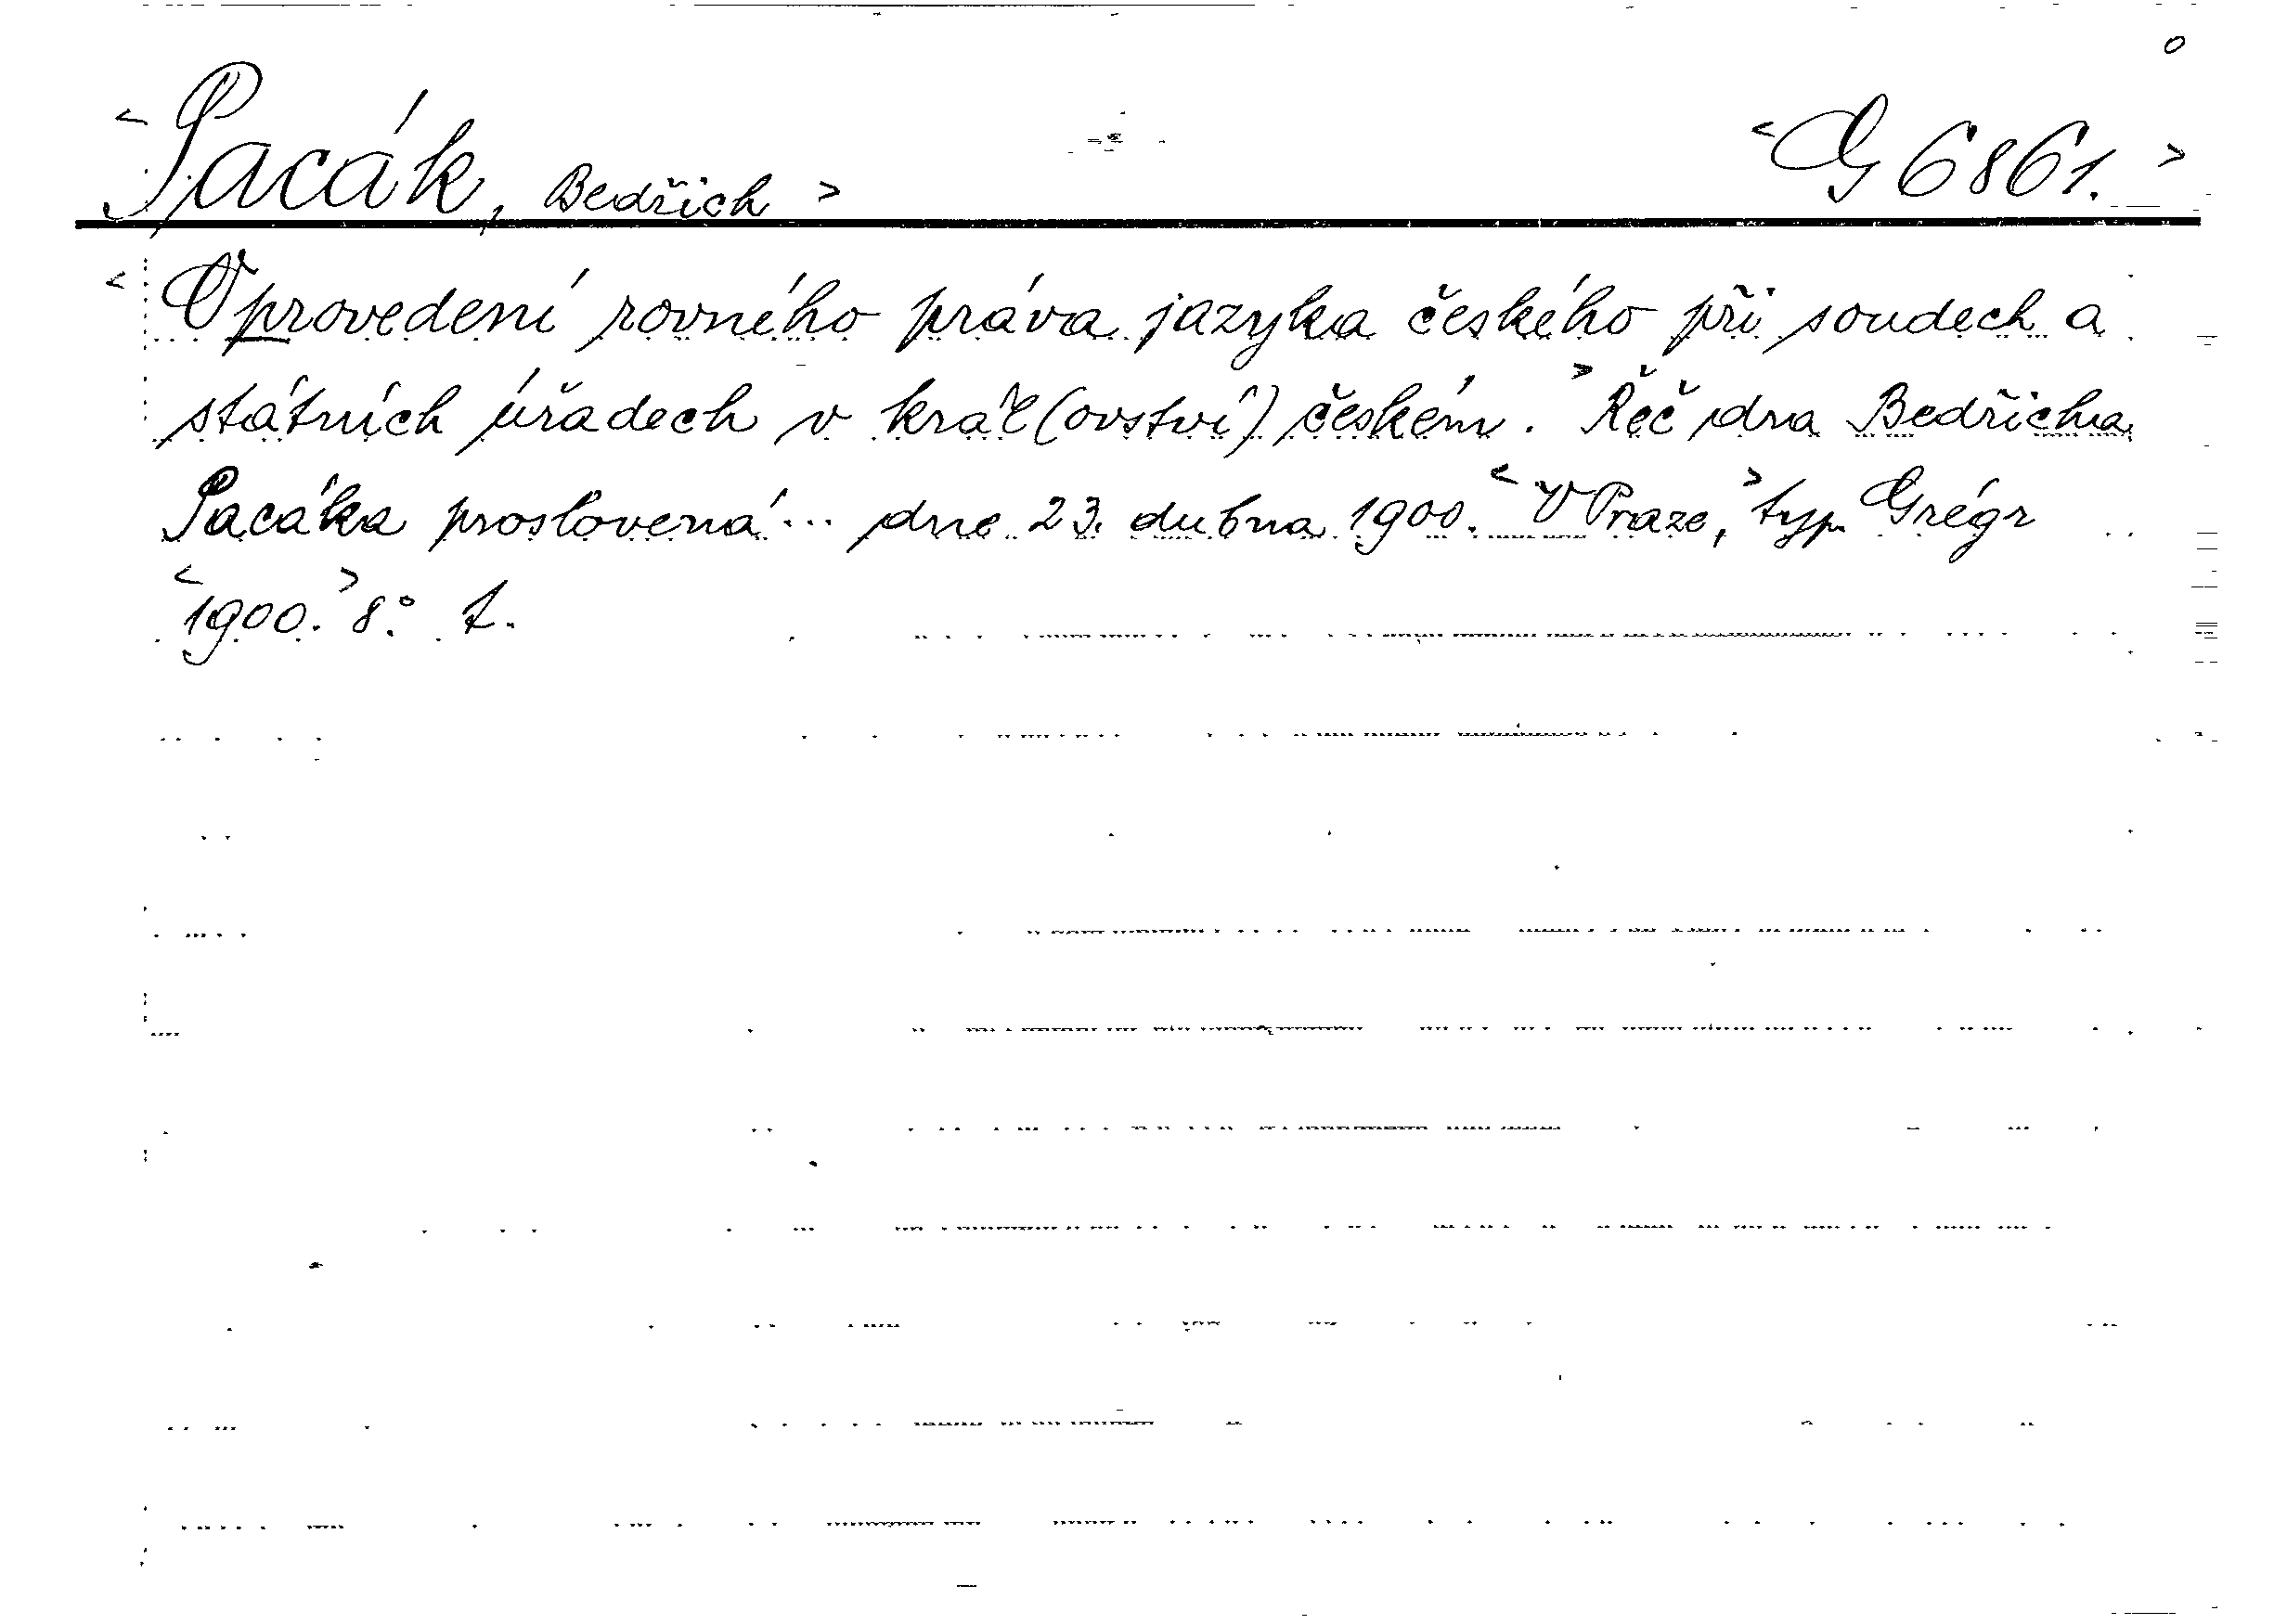 <Pacák, Bedřich> <G 6861.>
<O provedení rovného práva jazyka českého při soudech a
státních úřadech v král(ovství) českém.> Řeč dra Bedřicha
Pacáka proslovená... dne 23. dubna 1900. <V Praze,> typ. Grégr
<1900.> 8.° t.